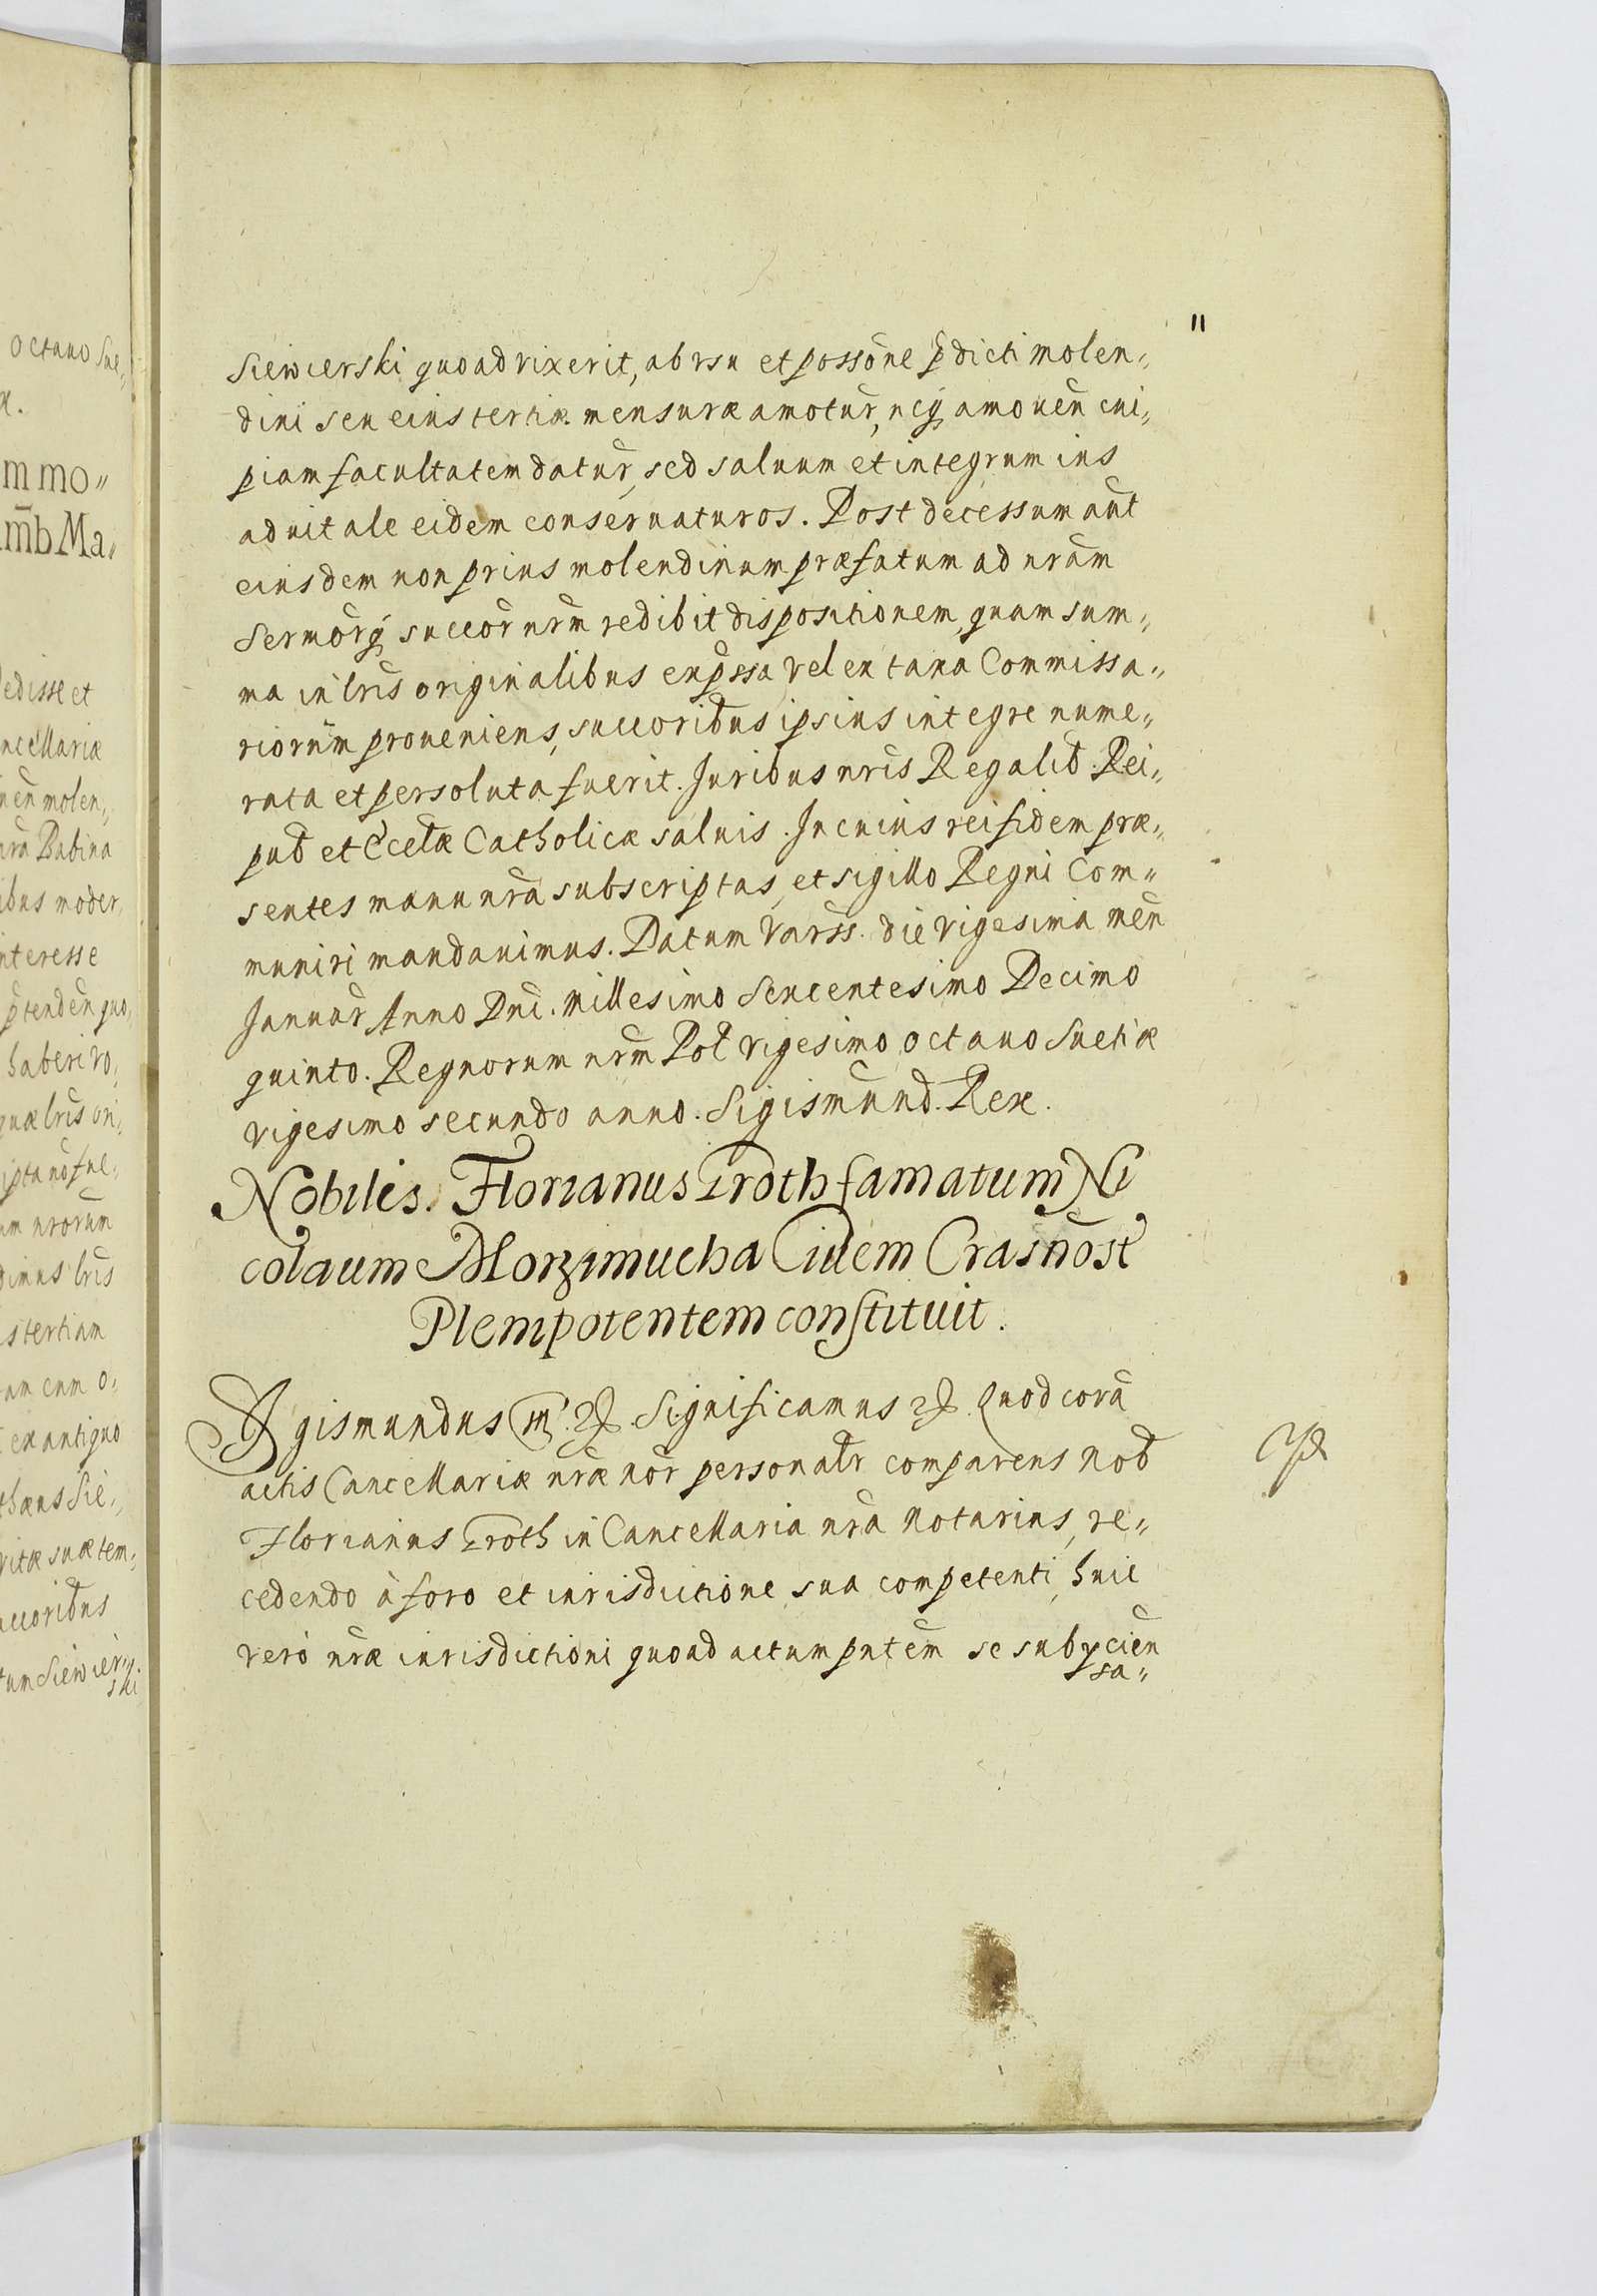 11
Siewierski quoad vixerit, ab vsu et possōne p̄dicti molen„
dini seu eius tertiæ mensuræ amotur̄, neq₃ amouen̄ cui„
piam facultatem datur̄, sed saluum et integrum ius
aduitale eidem conseruaturos. Post decessum aūt
eiusdem non prius molendinum præfatum ad nrām
Sermōrq₃ succor̄ nrm̄ redibit dispositionem, quam sum„
ma in lr̄is originalibus exp̄ssa vel ex taxa Commissa„
riorūm proueniens, succoribus ipsius integre nume„
rata et persoluta fuerit. Juribus nris Regalib. Rei„
pub et Eccel̄æ Catholicæ saluis. In cuius rei fidem præ„
sentes manu nrā subscriptas, et sigillo Regni Com„
muniri mandauimus. Datum Varss. die vigesima men̄
Januar̄ Anno Dn̄i. Millesimo Sexcentesimo Decimo
quinto. Regnorum nrm̄ Pol̄ vigesimo octauo Suetiæ
vigesimo secundo anno. Sigismund. Rex.
Nobilis. Florianus Troth famatum Ni
colaum Morzimucha Ciuem Crasnost
Plenipotentem constituit.
Sigismundus &c. Significamus &c. Quod corā
actis Cancellariæ nræ nor̄ personalr̄ comparens Nob
Florianus Troth in Cancellaria nrā Notarius, re„
cedendo à foro et iurisdictione sua competenti, huic
verò nræ iurisdictioni quoad actum pn̄tem se subycien̄
sa„
octauo Sue„
æ.
m mo„
mb Ma„
dedisse et
ncellariæ
men̄ molen„
nrā Babina
ibus moder
interesse
p̄tenden̄ quo„
haberi vo„
quæ lr̄is ori„
um nrorum
dimus lr̄is
s tertiam
am cum o„
ex antiquo
thæus Sie„
vitæ suæ tem„
uccoribus
tum Siewier„
ski